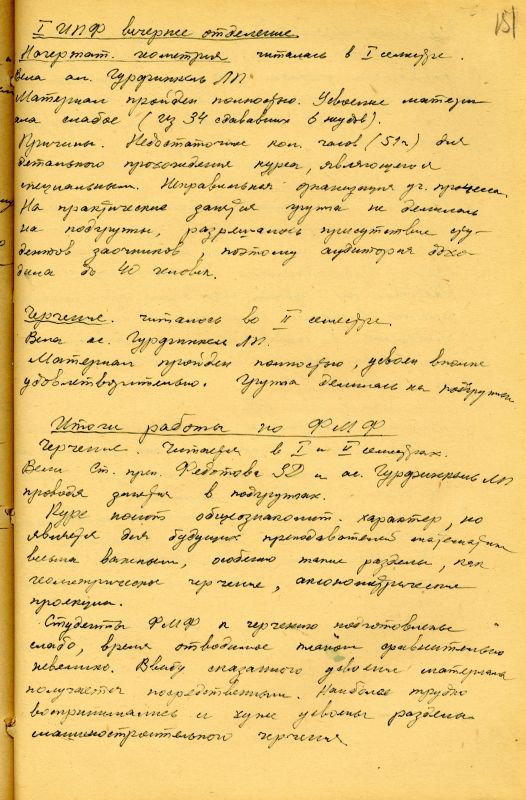 151
I ИПФ вечернее отделение
Начертат. геометрия читалась в I семестре.
Вела ас. Гурфинкель ЛП.
Материал пройден полностью. Усвоение материа-
ла слабое (из 34 сдававших 6 неудов).
Причины. Недостаточное кол. часов (51ч) для
детального прохождения курса, являющегося
специальным. Неправильная организация уч. процесса.
На практические занятия группа не делилась
на подгруппы, разрешалось присутствие сту-
дентов заочников, поэтому аудитория дохо-
дила до 40 человек.
Черчение. читалось во II семестре.
Вела ас. Гурфинкель ЛП.
Материал пройден полностью, усвоен вполне
удовлетворительно. Группа делилась на подгруппы
Итоги работы по ФМФ
Черчение. Читается в I и II семестрах.
Вели Ст. преп. Федотова ЗД и ас. Гурфинкель ЛП
проводя занятия в подгруппах.
Курс носит общеознакомит. характер, но
является для будущих преподавателей математики
весьма важным, особенно такие разделы, как
геометрическое черчение, аксонометрические
проекции.
Студенты ФМФ к черчению подготовлены
слабо, время отводимое планом сравнительно
невелико. Ввиду сказанного усвоение материала
получается посредственным. Наиболее трудно
воспринимались и хуже усвоены разделы
машиностроительного черчения